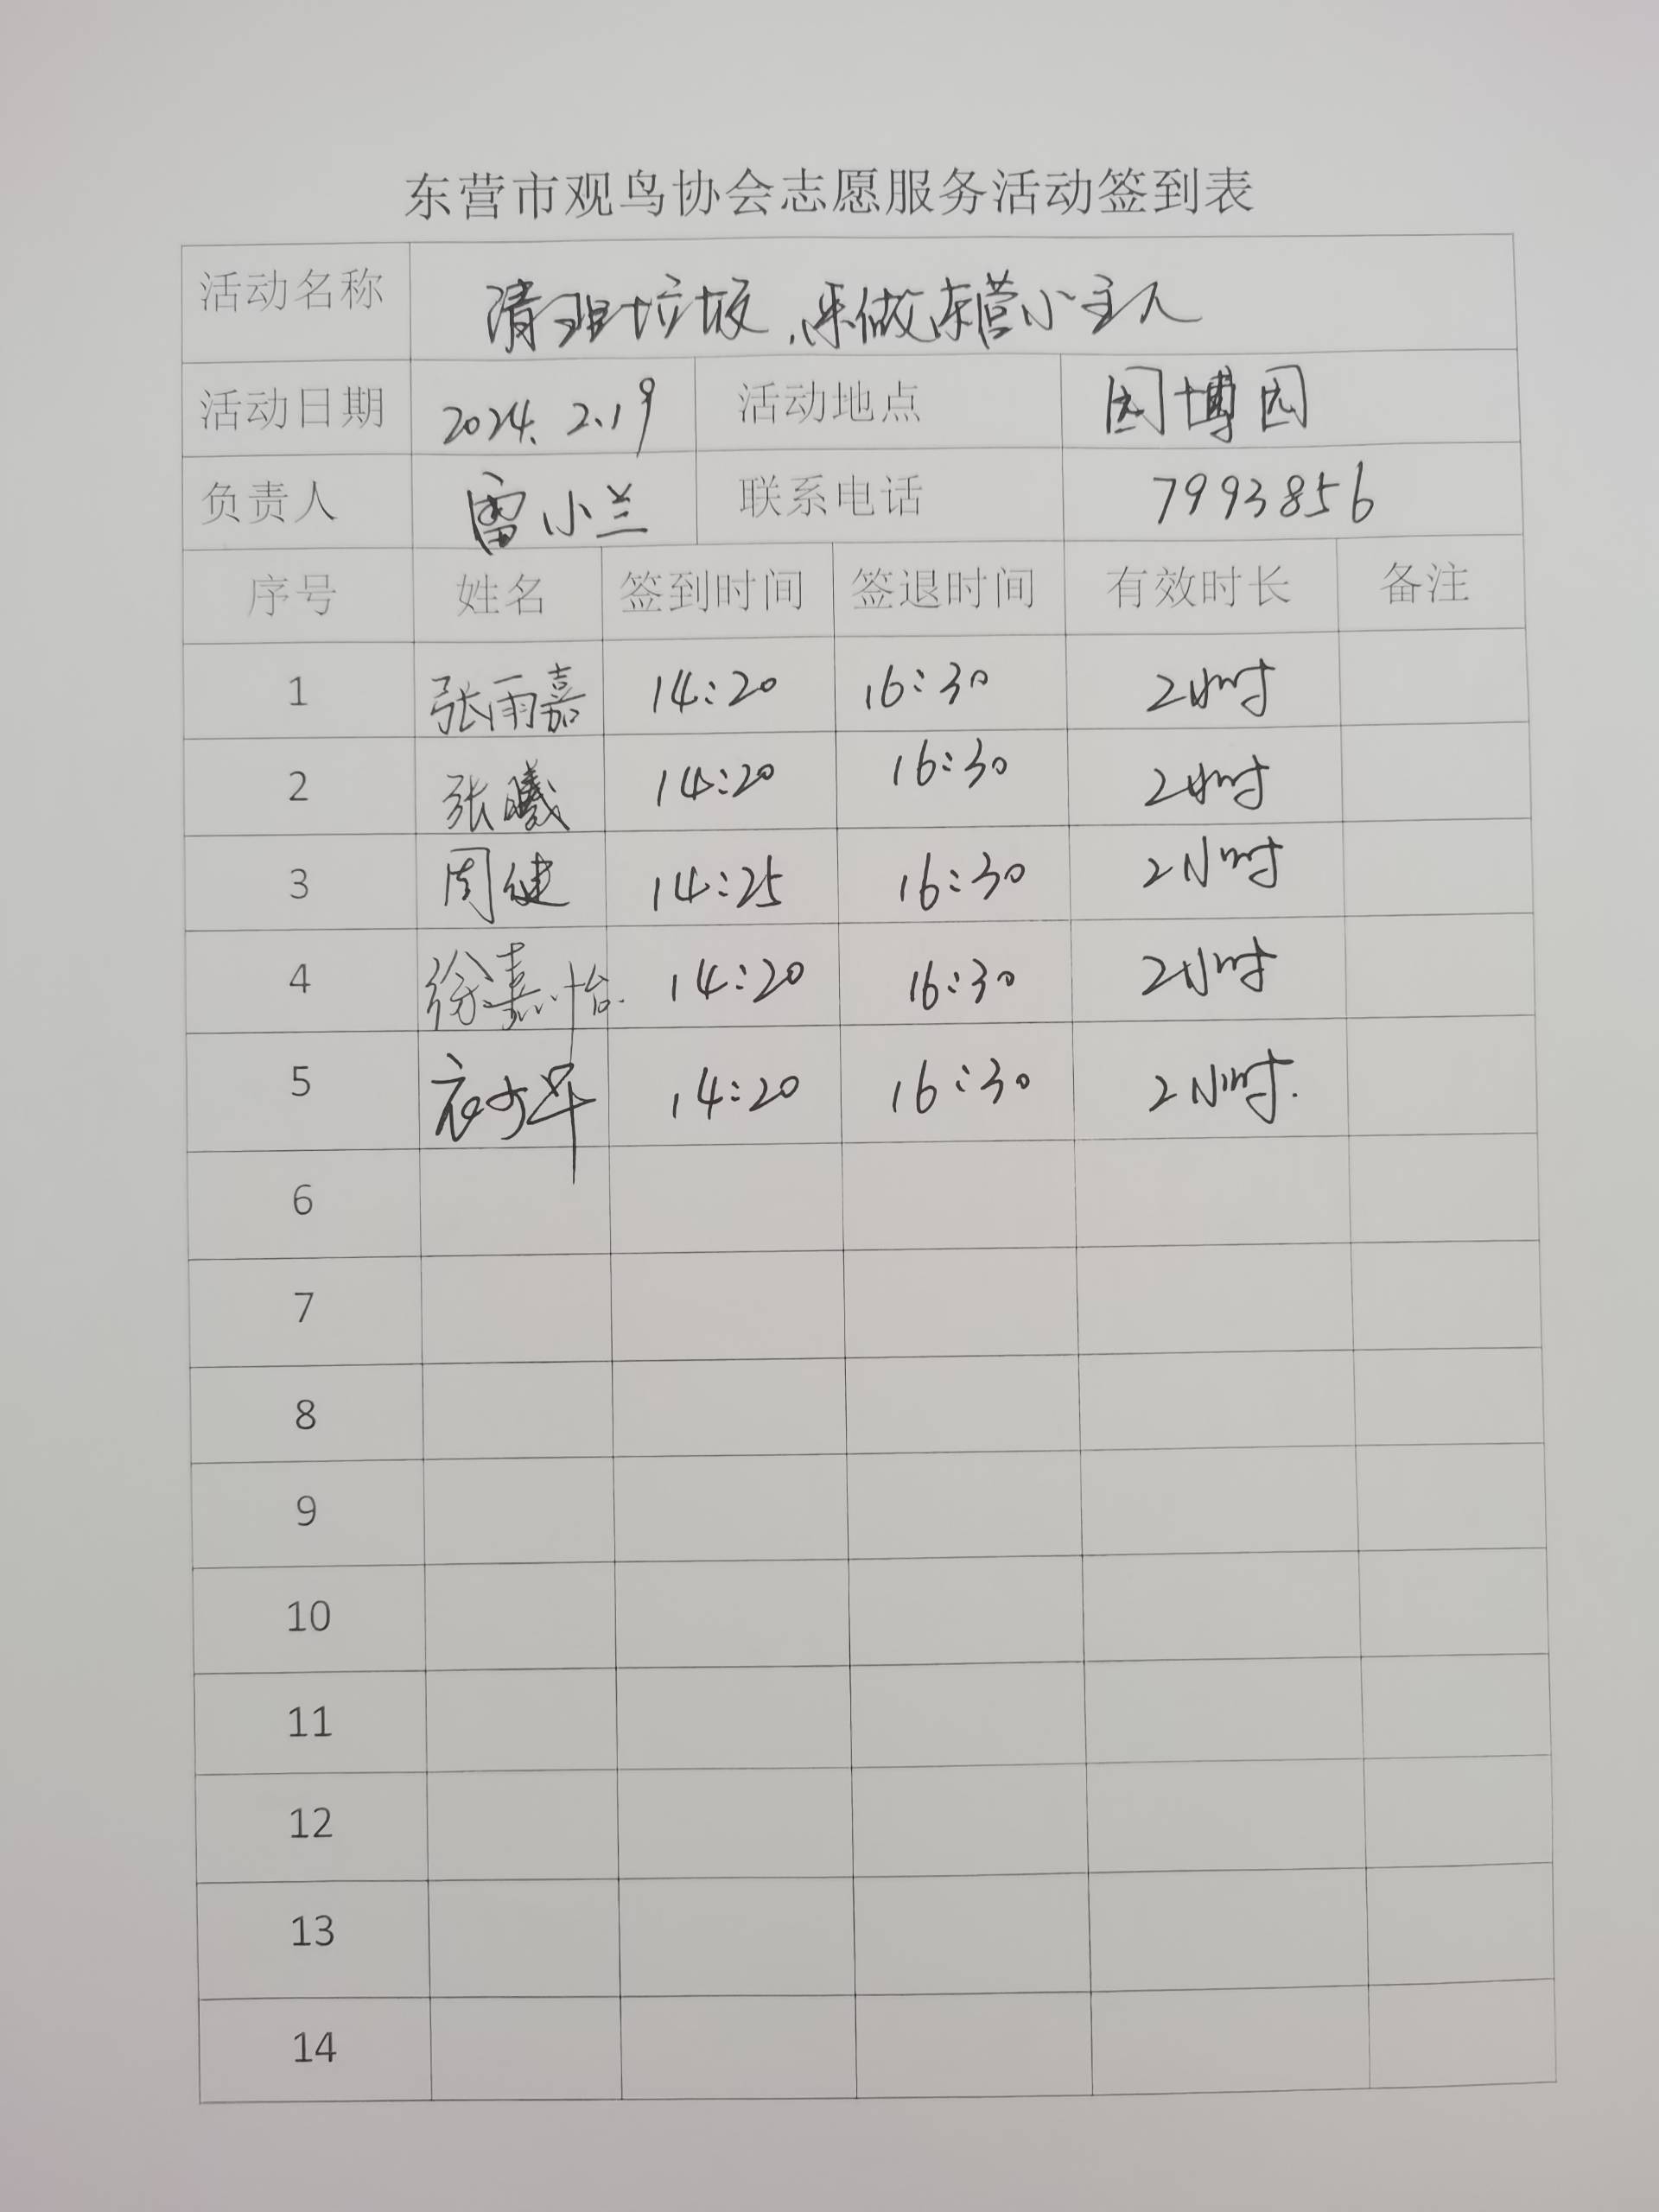 东营市观鸟协会志愿服务活动签到表
活动名称 清理垃圾,乐做东营小主人
活动日期 2024.2.19 活动地点 园博园
负责人 雷小兰 联系电话 7993856
序号 姓名 签到时间 签退时间 有效时长 备注
1 张雨嘉 14:20 16:30 2小时
2 张曦 14:20 16:30 2小时
3 周健 14:25 16:30 2小时
4 徐嘉怡 14:20 16:30 2小时
5 14:20 16:30 2小时.
6
7
8
9
10
11
12
13
14